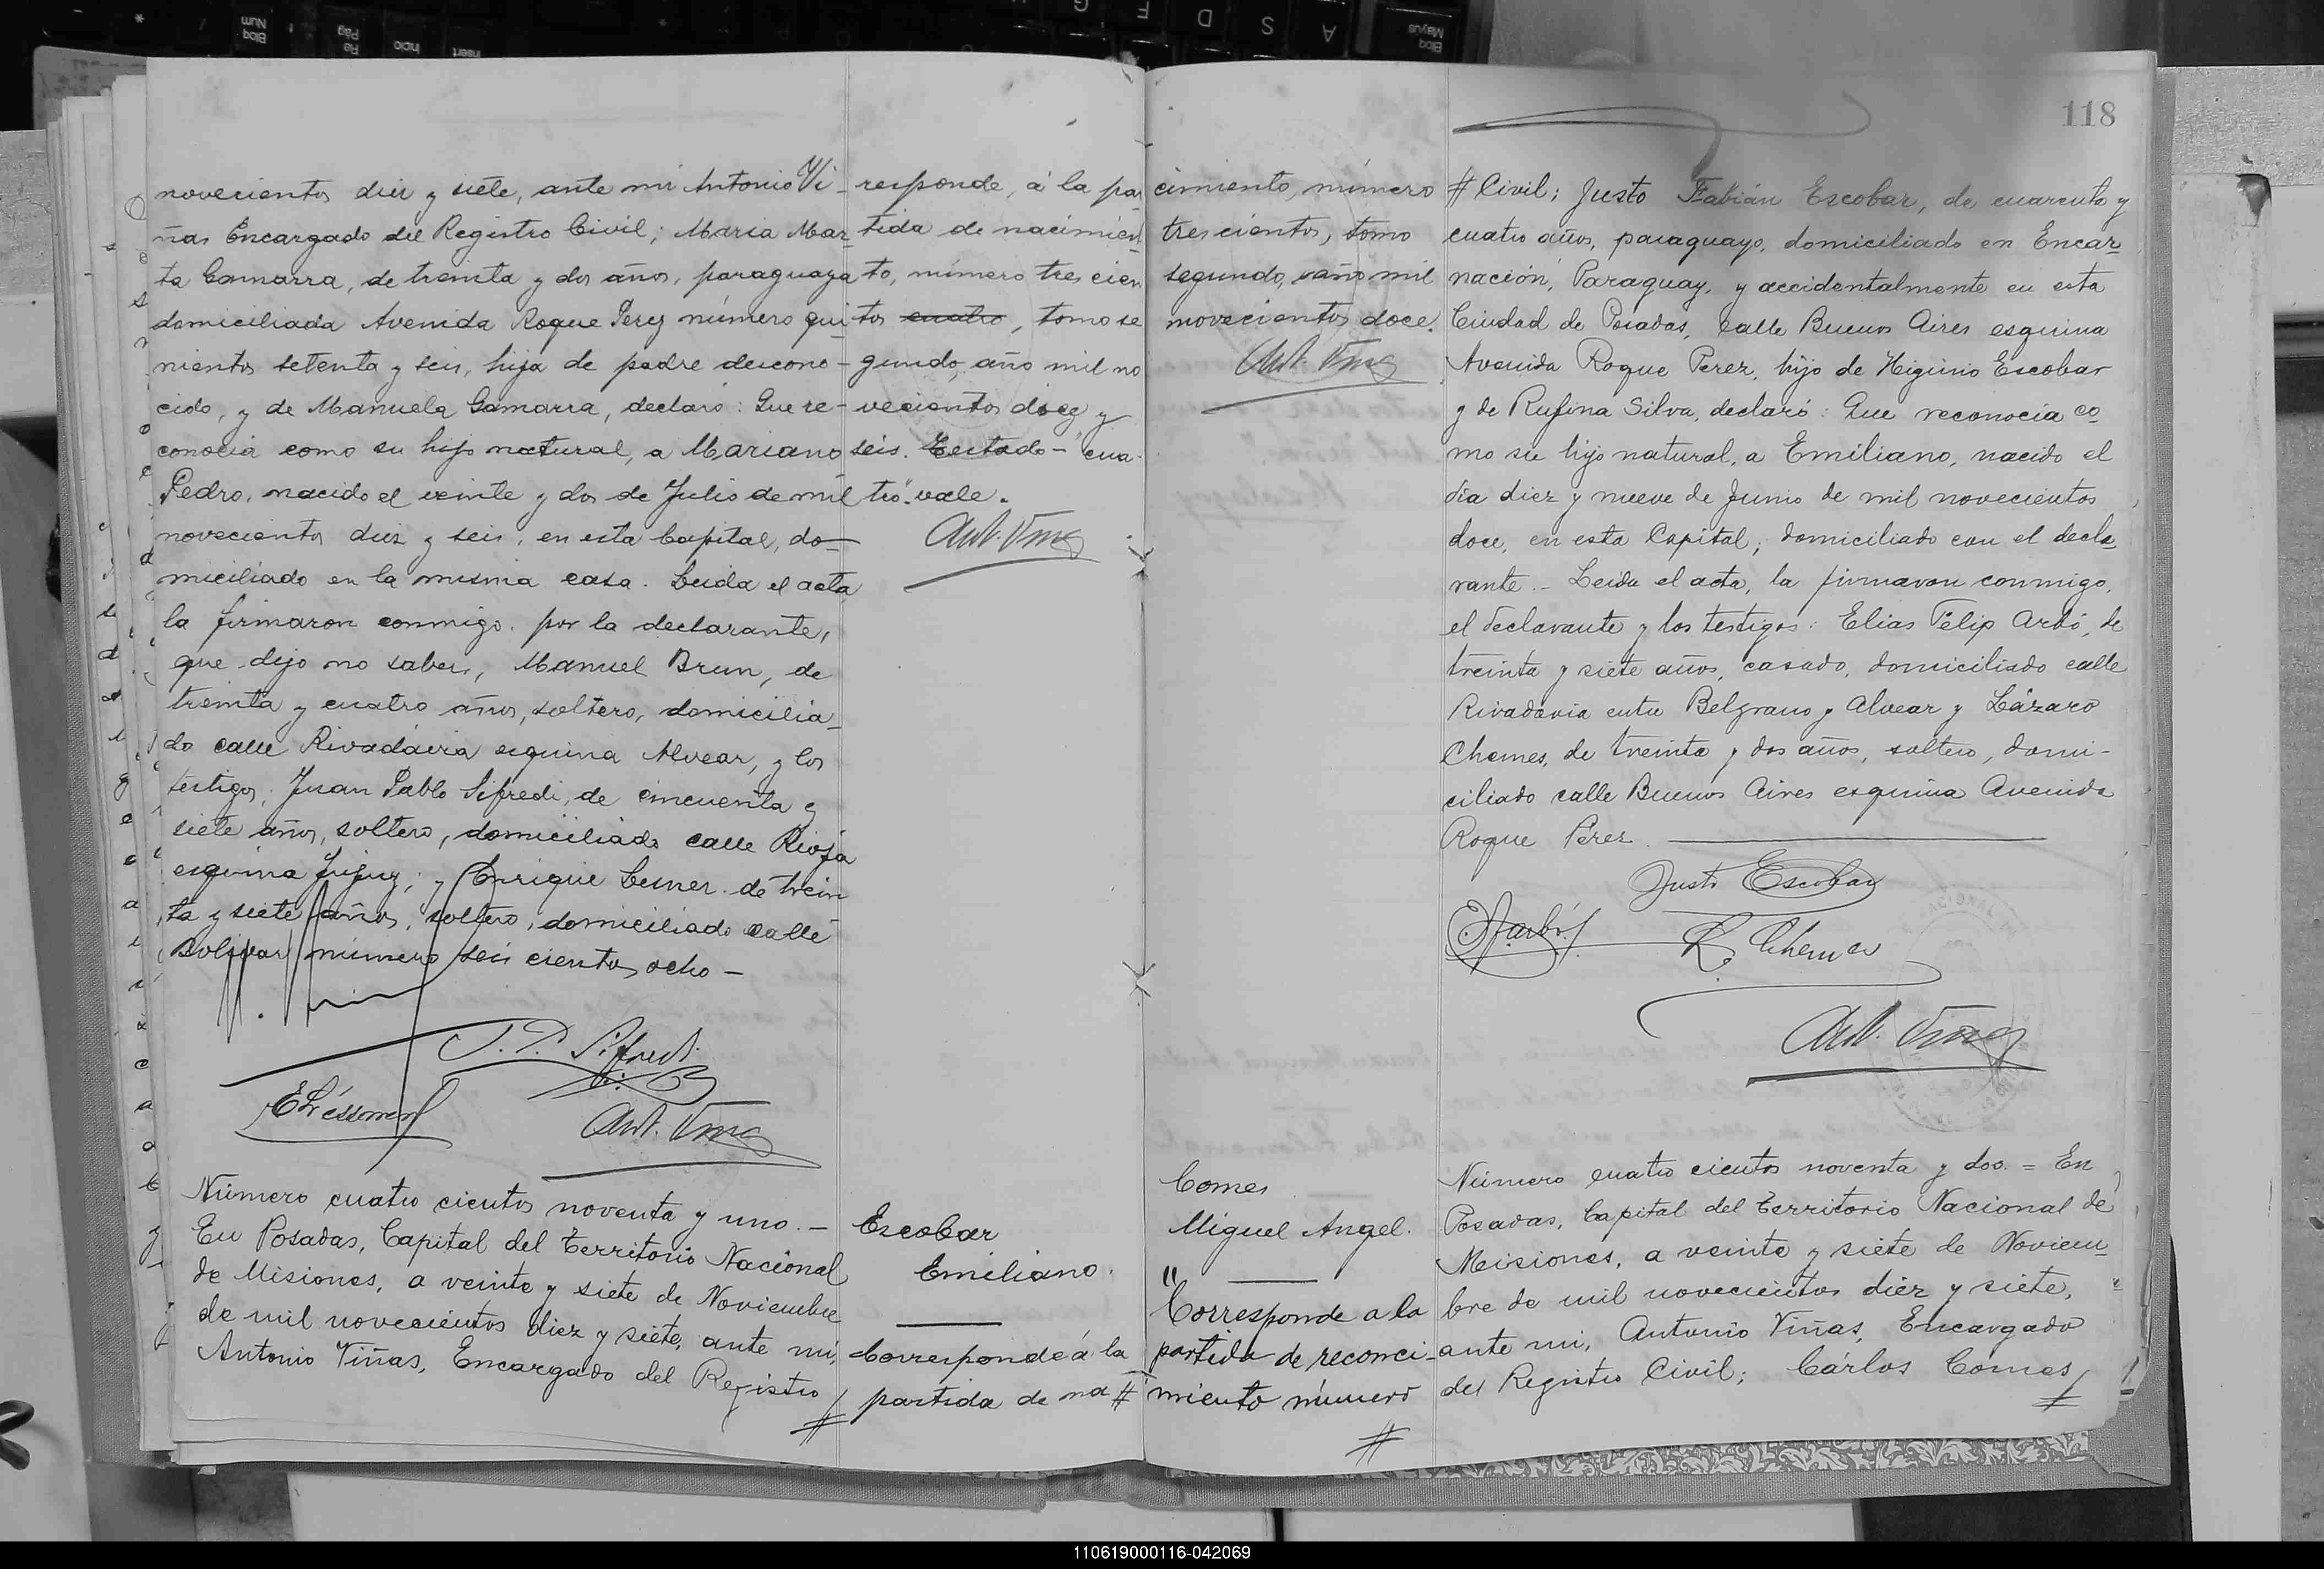 118
novecientos diez y siete, ante mi Antonio Vi-
ñas Encargado del Registro Civil; Maria Mar-
ta Gamarra, de treinta y dos años, paraguaya
domiciliada Avenida Roque Perez número qui-
nientos setenta y seis, hija de padre descono-
cido, y de Manuela Gamarra, declaró: Que re-
conocia como su hijo natural, a Mariano
Pedro, nacido el veinte y dos de Julio de mil
novecientos diez y seis, en esta Capital, do-
miciliado en la misma casa. Leida el acta
la firmaron conmigo, por la declarante,
que dijo no saber, Manuel Brun, de
treinta y cuatro años, soltero, domicilia-
do calle Rivadavia esquina Alvear, y los
testigos, Juan Pablo Sifredi, de cincuenta y
siete años, soltero, domiciliado calle Rioja
esquina Jujuy; y Enrique Lesner de trein
ta y siete años, soltero, domiciliado calle
Bolivar número seis cientos ocho -
J. P. Sifredi
Ant. Viñas
responde, á la par
tida de nacimien
to, número tres cien
tos cuatro, tomo se
gundo, año mil no
vecientos doce y
seis. Testado - "cua
tro" vale.
Ant. Viñas
Número cuatro cientos noventa y uno. -
En Posadas, Capital del Territorio Nacional
de Misiones, a veinte y siete de Noviembre
de mil novecientos diez y siete, ante mi,
Antonio Viñas, Encargado del Registro
#
Escobar
Emiliano.
Corresponde á la
partida de na #
cimiento, número
trescientos, tomo
segundo, año mil
novecientos doce.
Ant. Viñas
# Civil; Justo Fabián Escobar, de cuarenta y
cuatro años, paraguayo, domiciliado en Encar-
nación, Paraguay, y accidentalmente en esta
Ciudad de Posadas, calle Buenos Aires esquina
Avenida Roque Perez, hijo de Higinio Escobar
y de Rufina Silva, declaró: Que reconocia co-
mo su hijo natural, a Emiliano, nacido el
dia diez y nueve de Junio de mil novecientos
doce, en esta Capital; domiciliado con el decla-
rante. - Leida el acta, la firmaron conmigo,
el declarante y los testigos: Elias Félip Arbó, de
treinta y siete años, casado, domiciliado calle
Rivadavia entre Belgrano y Alvear y Lázaro
Chemes, de treinta y dos años, soltero, domi-
ciliado calle Buenos Aires esquina Avenida
Roque Pérez.
Justo Escobar
L. Chemes
Ant. Viñas
Comes
Miguel Angel.
"
Corresponde a la
partida de reconci-
miento número
#
Número cuatro cientos noventa y dos. = En
Posadas, Capital del Territorio Nacional de
Misiones, a veinte y siete de Noviem-
bre de mil novecientos diez y siete,
ante mi, Antonio Viñas, Encargado
del Registro Civil; Cárlos Comes
#
110619000116-042069